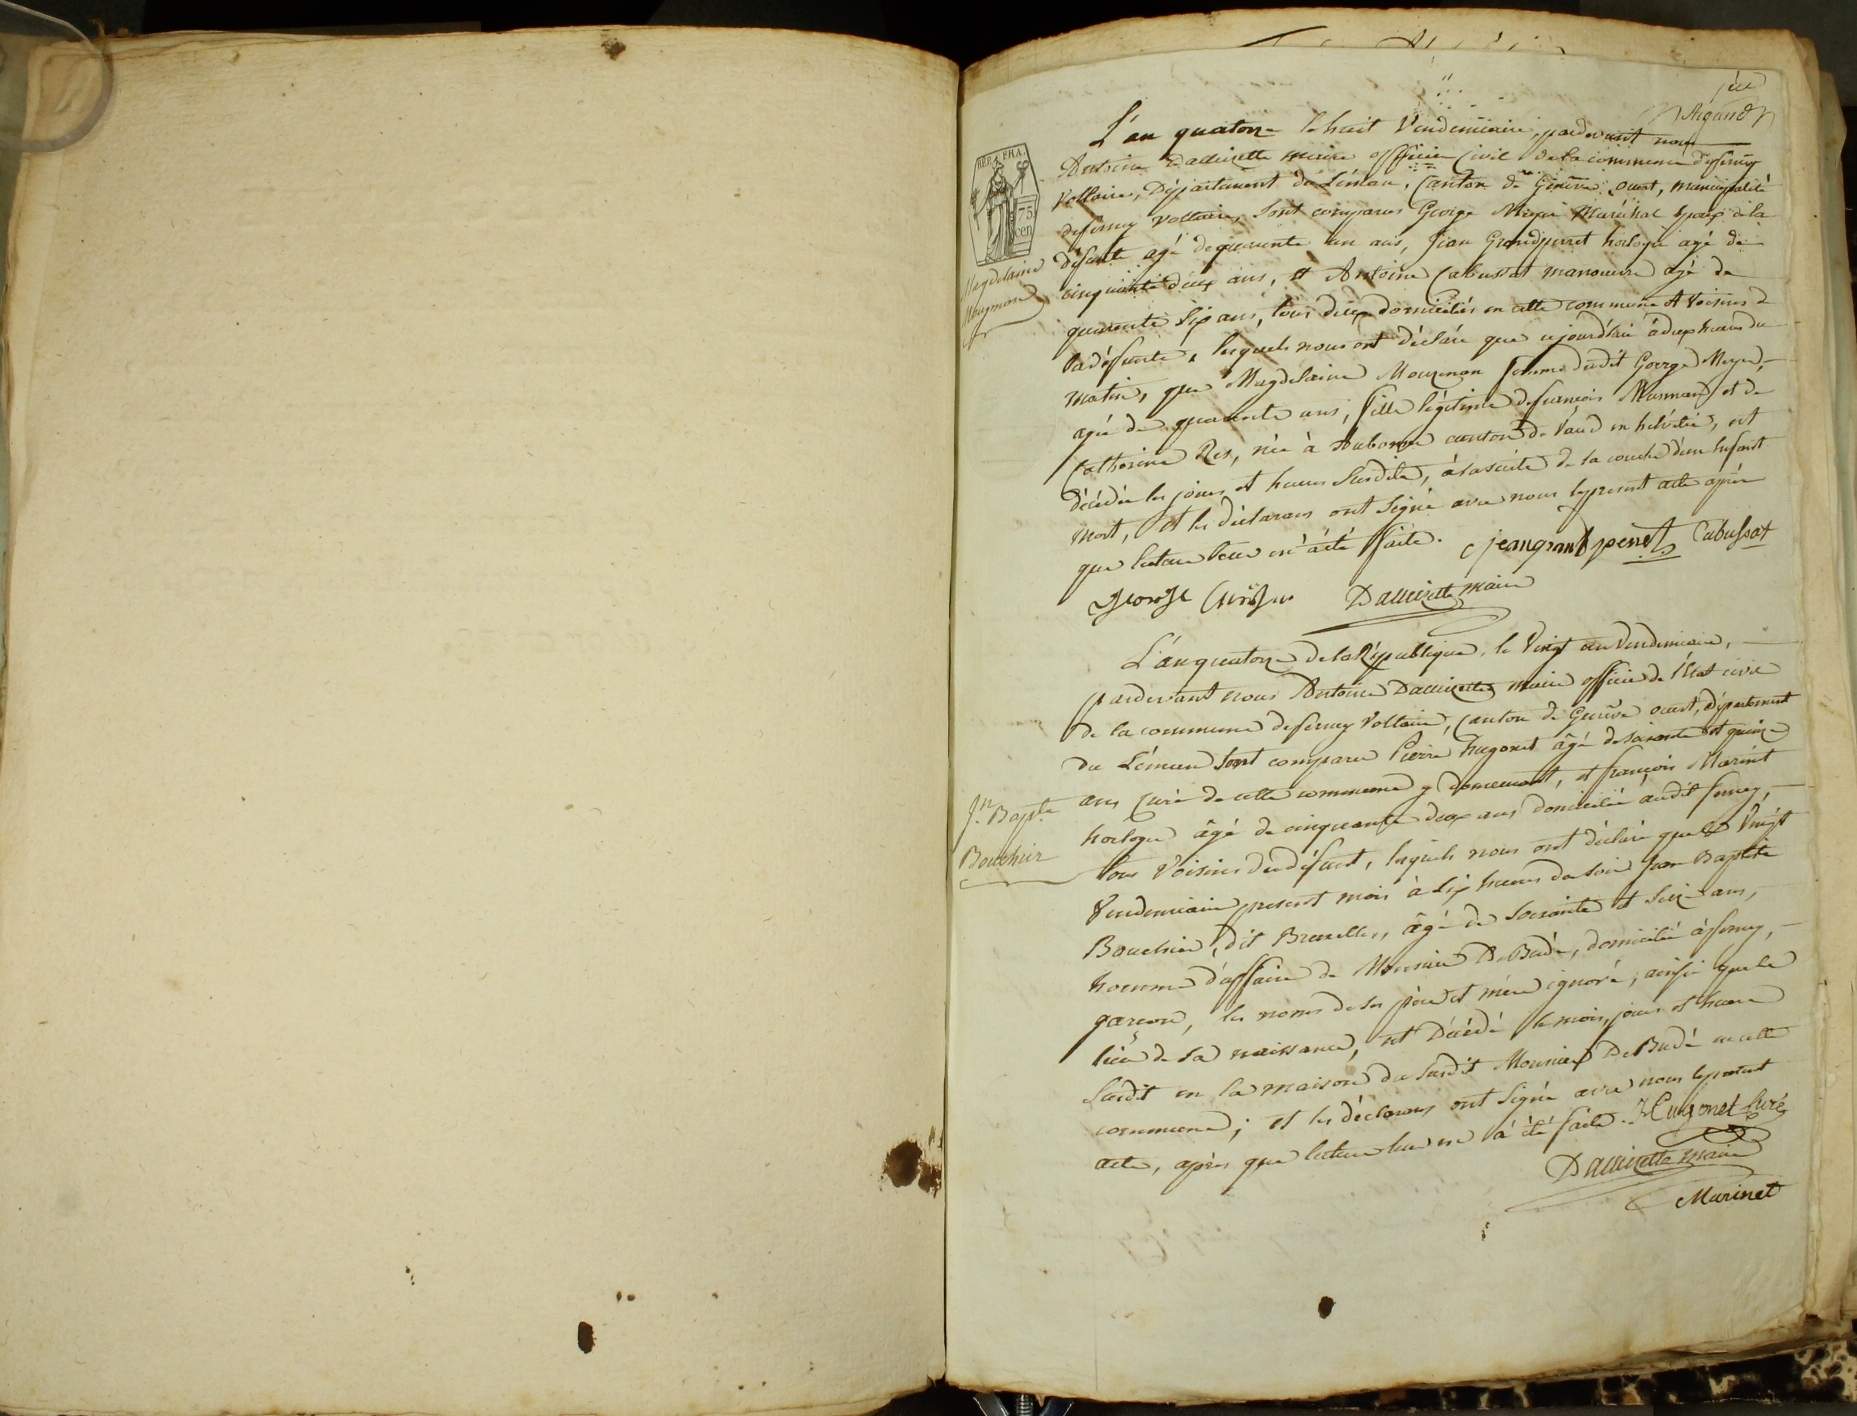 REP. FRA.
75
cen
Magdelaine
L'an quatorze le huit Vendemiaire, pardevant nous
Antoine Dallizette maire officier Civil de la commune defernex
Voltaire, Département du Léman, Canton de Genève ouest, municipalité
defernex Voltaire, sont comparus George Meyer Maréchal Epoux de la
défunte agé de quarante un ans, Jean Grandperret horloger agé de
cinquante deux ans, et Antoine Cabussat manoeuvre agé de
quarante six ans, tous deux domiciliés en cette commune et Voisins de
la défunte, lesquels nous ont déclaré que cejourd'hui à dix heures du
matin, que Magdelaine femme dudit George Meyer,
agée de quarante ans, fille légitime defrançois et de
Catherine Rex, née à Aubonne canton de Vaud en helvétie, est
décédée les jour et heures Susdite, à la suite de la couche d'un Enfant
mort, et les déclarans ont Signé avec nous le present acte après
que lecture leur en a été faite. jean grand perret Cabussat
George Dallizette maire
L'an quatorze de la République, le Vingt un Vendemiaire,
pardevant nous Antoine Dallizette maire officier de l'Etat civil
de la commune defernex Voltaire, Canton de Genève ouest, département
du Léman sont comparu Pierre hugonet âgé de soixante et quinze
ans Curé de cette commune y demeurant, et françois Marinet
Jn. Bapte.
horloger âgé de cinquante deux ans domicilié audit fernex,
Bouchier
tous Voisins du défunt, lesquels nous ont déclaré que le Vingt
Vendemiaire present mois à Six heures du soir Jean Baptiste
Bouchier, dit Bruxelles, âgé de Soixante et seize ans,
homme d'affaire de Monsieur De Budé, domicilié à fernex,
garçon, les noms de ses père et mère ignoré, ainsi que le
lieu de sa naissance, est Décédé le mois, jour et heure
Susdit en la maison du susdit Monsieur De Budé en cette
commune; et les déclarans ont Signé avec nous le present
acte, après que lecture leur en à été faite. Hugonet Curé
Dallizette maire
Marinet